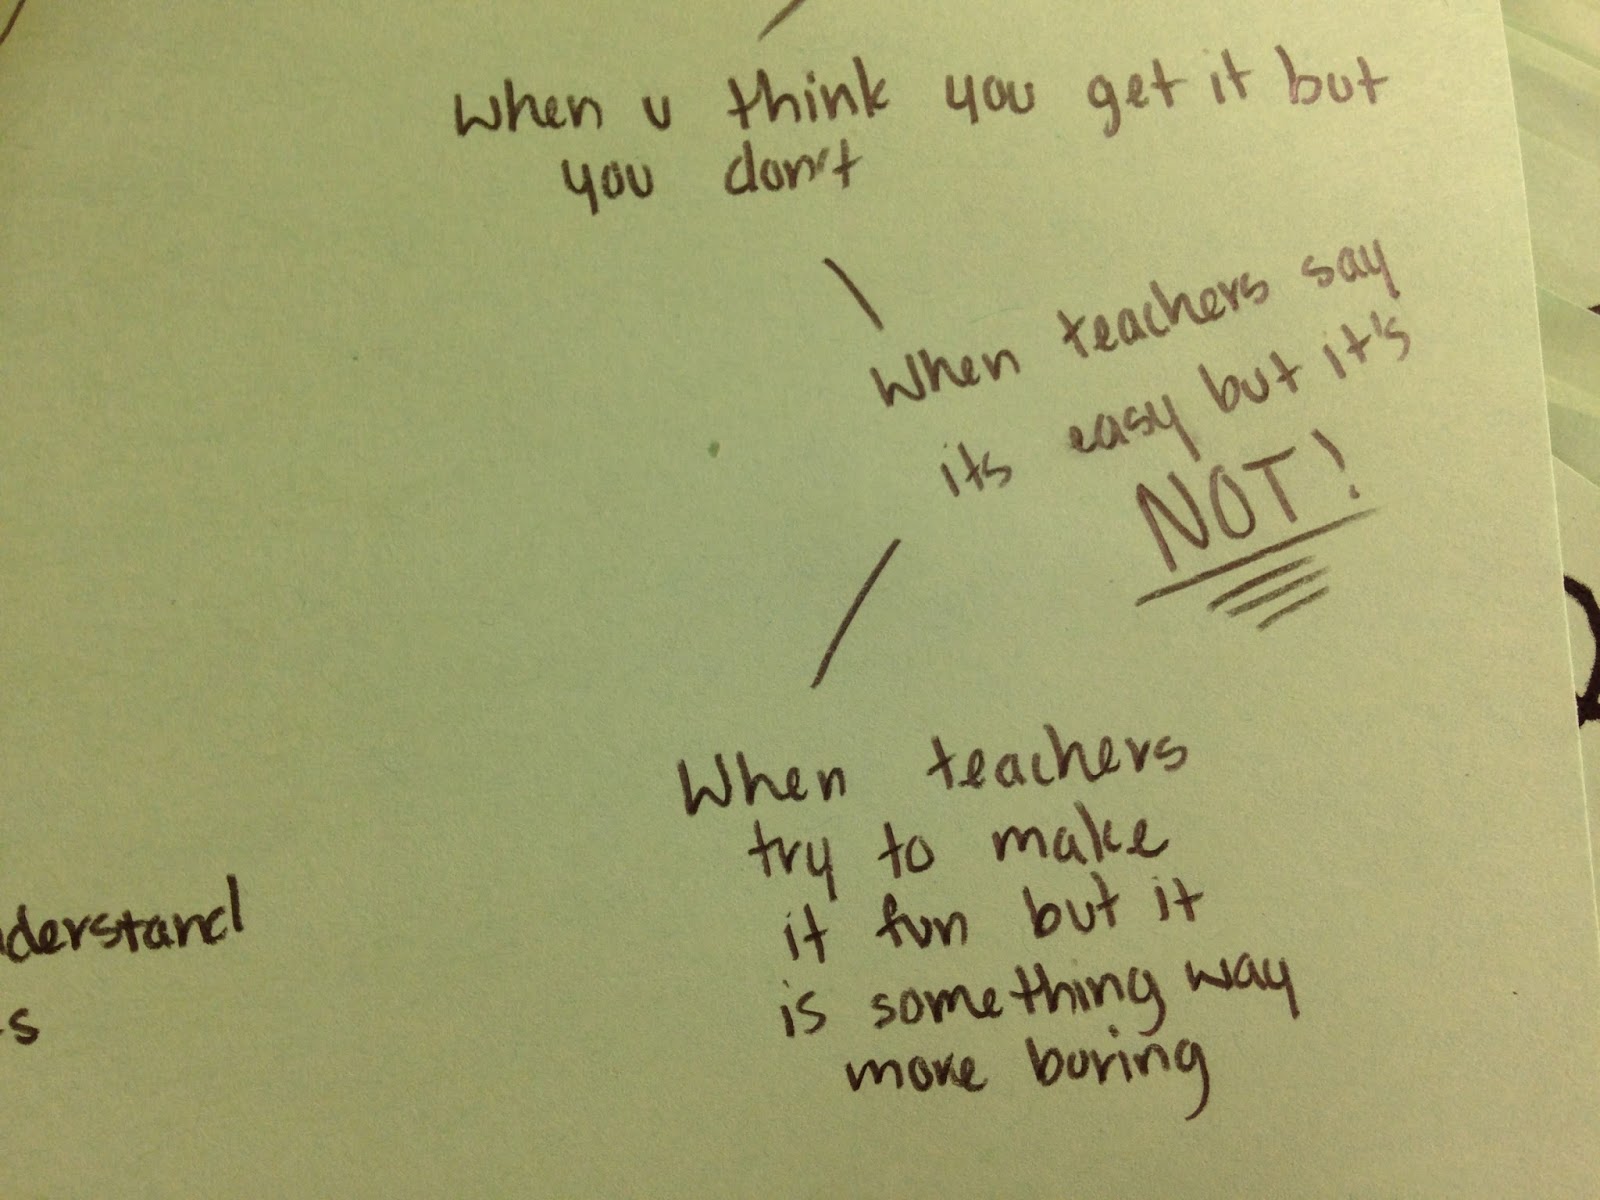 When u think you get it but
you don't
When teachers say
its easy but it's
NOT!
When teachers
try to make
it fun but it
is something way
more boring
derstand
s